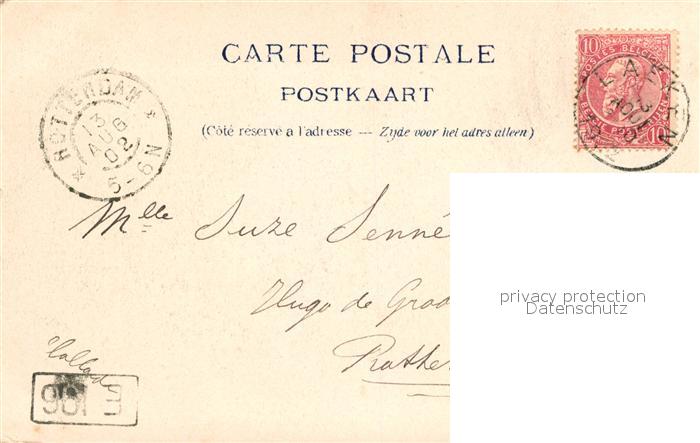 CARTE POSTALE
POSTKAART
(Côté réservé a l'adresse — Zyde voor het adres alleen)
ROTTERDAM
13
AUG
02
5-6N
10 POSTES BELGIQUE
10
LAEKEN
Mlle Suze Senné
Hugo de Groo
Rotte
privacy protection
Datenschutz